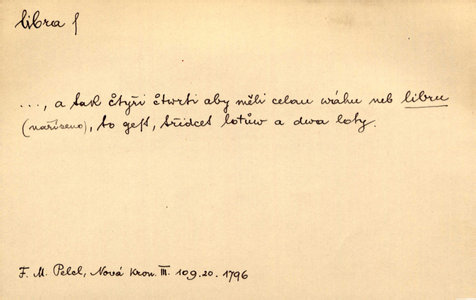 libra f
..., a tak čtyři čtwrti aby měli celau wáhu neb libru
(nařízeno), to gest, třidcet lotůw a dwa loty.
F. M. Pelcl, Nová Kron. III. 109.20. 1796